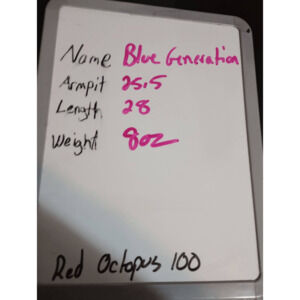 Name Blue Generation
Armpit 25.5
Length 28
Weight 8oz
Red Octopus 100